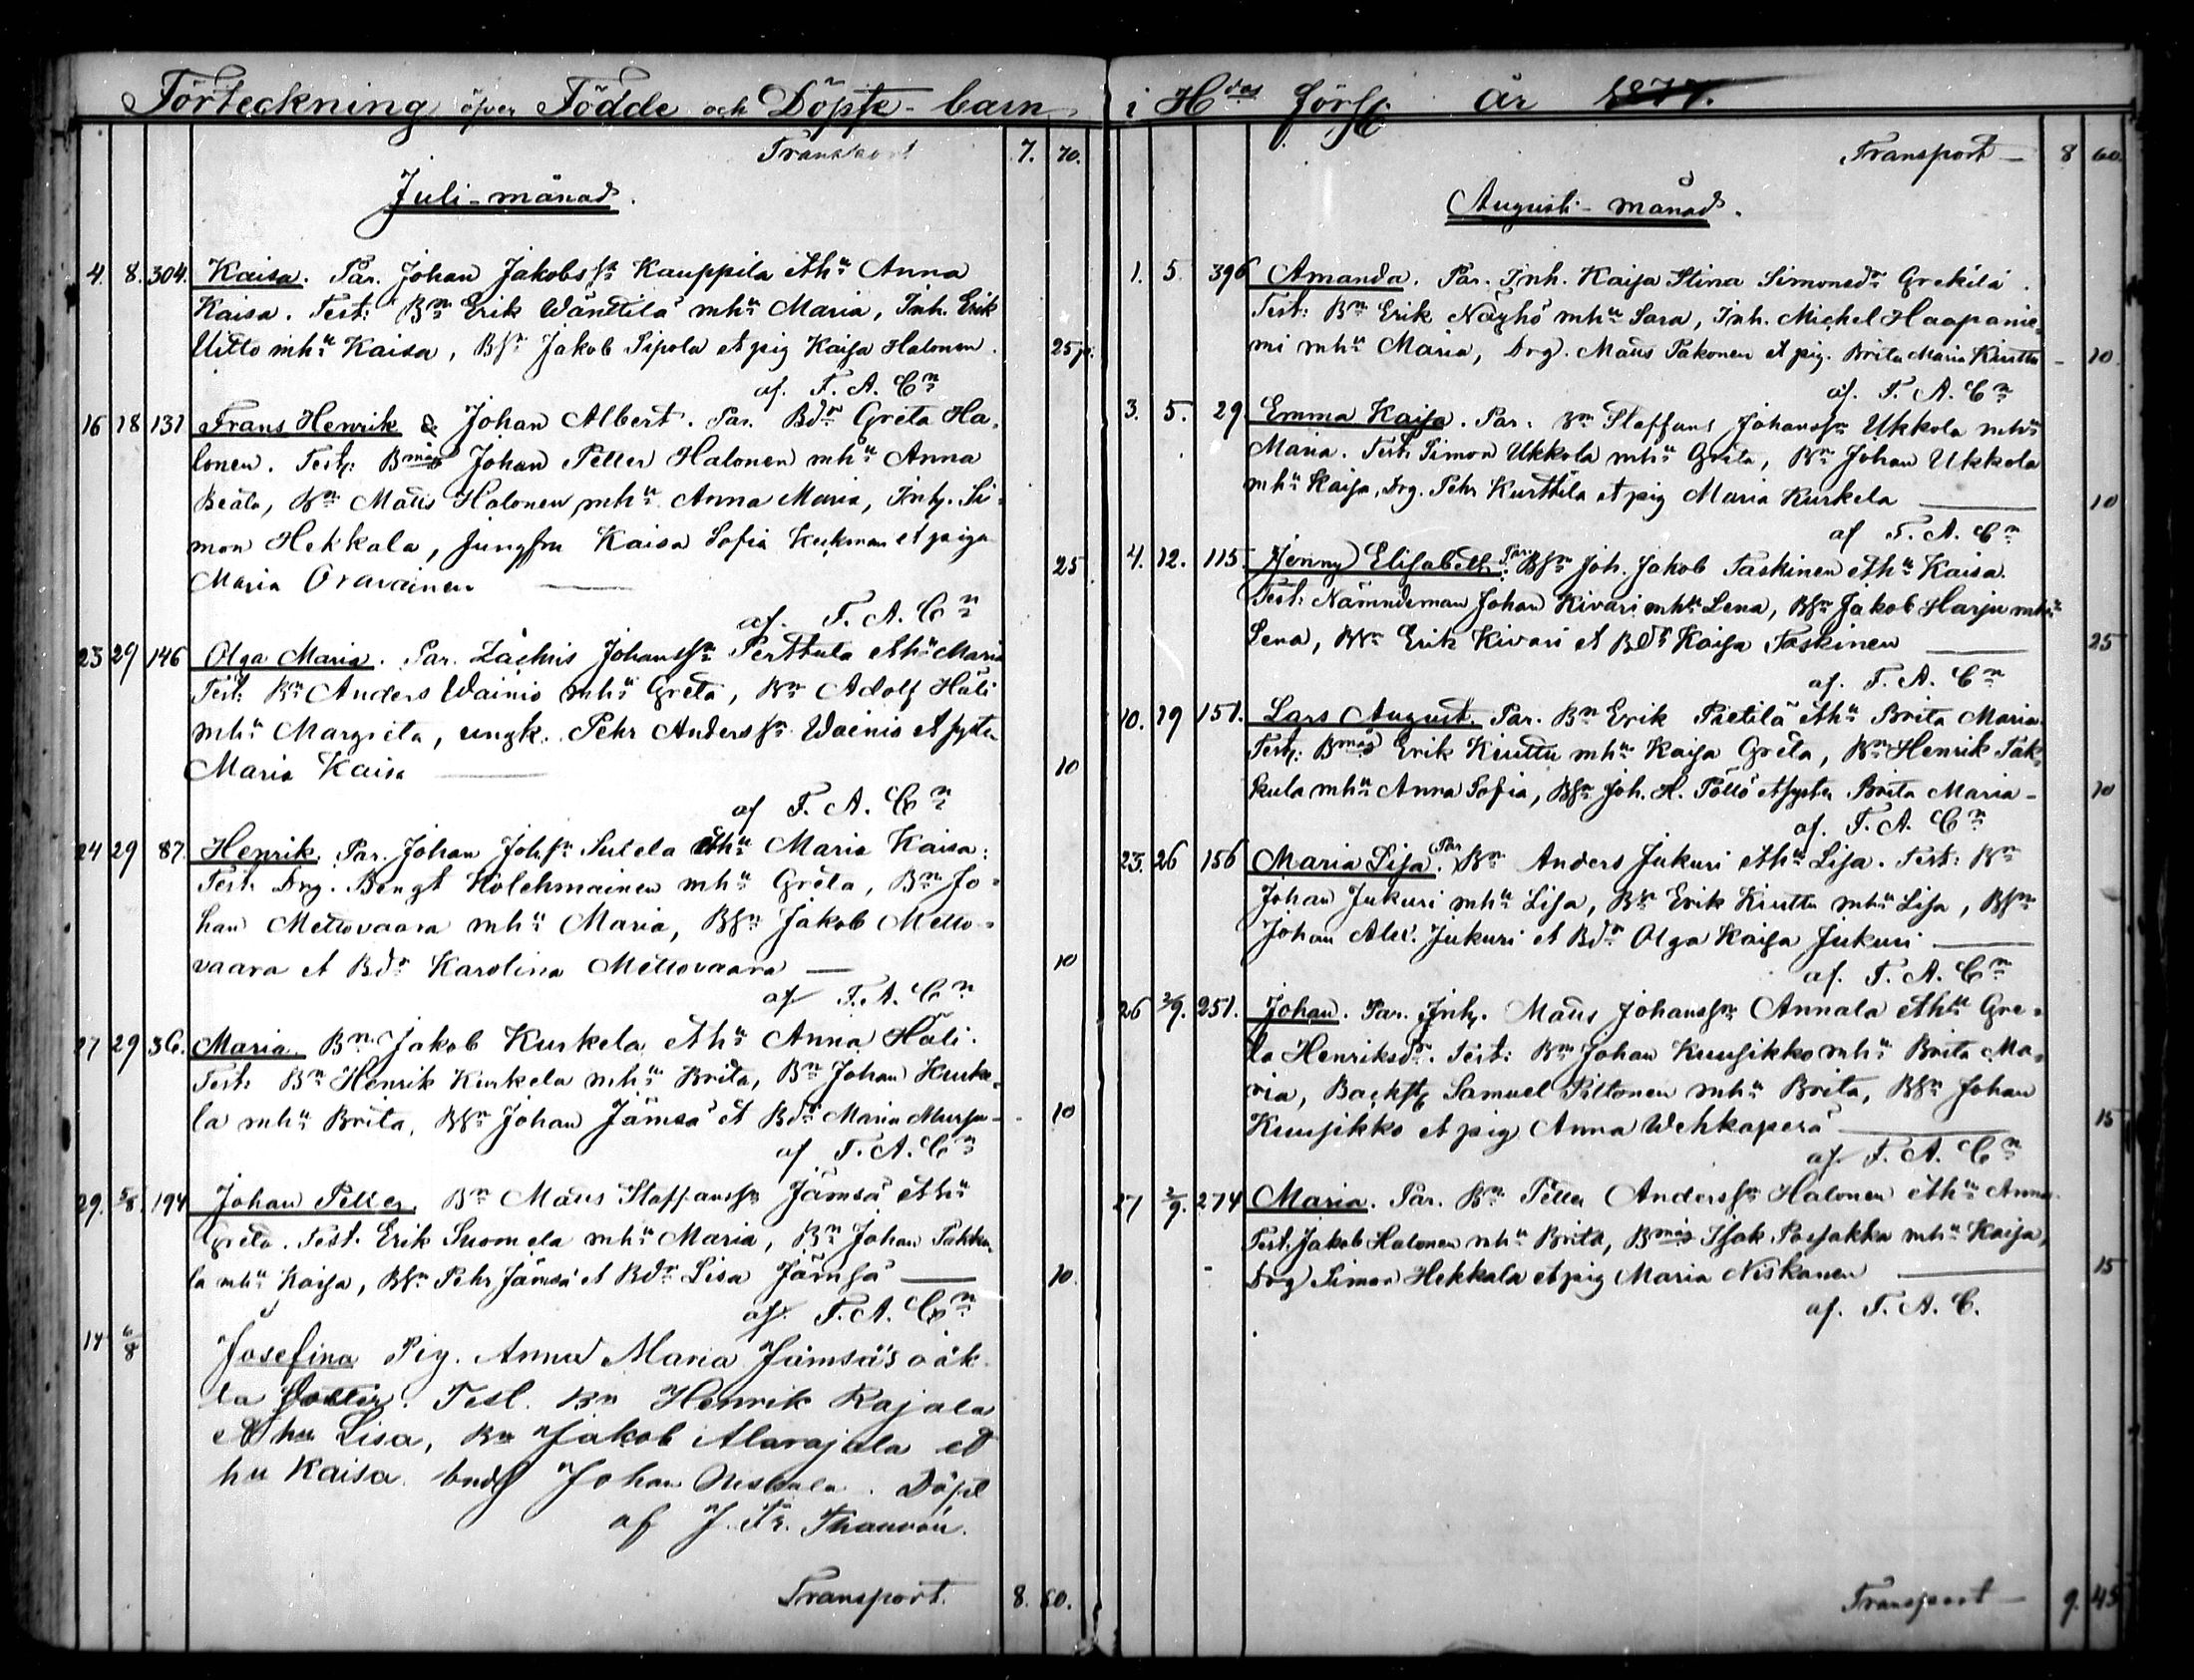 Förteckning öfver Födde och Döpte barn
Transport 7. 70.
Juli-månad.
4. 8. 304. Kaisa. Par. Johan Jakobssn Kauppila et hu Anna
Kaisa. Test: Bn Erik Wänttilä mhu Maria, Inh. Erik
Uitto mhu Kaisa, Bsn Jakob Sipola et pig Kaisa Halonen. 25 p.
af. F. A. Cn
16 18 131 Frans Henrik & Johan Albert. Par. Bdr Greta Ha-
lonen. Test: Bmåg Johan Petter Halonen mhu Anna
Beata, Bn Matts Halonen mhu Anna Maria, Inh. Si-
mon Hekkala, jungfru Kaisa Sofia et piga
Maria Oravainen 25
af. F. A. Cn
23 29 146 Olga Maria. Par. Zachris Johanssn Perttula et hu Maria
Test: Bn Anders Wainio mhu Greta, Bn Adolf Häli
mhu Margreta, ungk. Pehr Anderssn Wainio et syster
Maria Kaisa 10
af F. A. Cn
24 29 87. Henrik. Par. Johan Johssn Sulela et hu Maria Kaisa.
Test: Drg. Bengt Kolehmainen mhu Greta, Bn Jo-
han Mettovaara mhu Maria, Bsn Jakob Metto-
vaara et Bdr Karolina Mettovaara 10
af F. A. Cn
27 29 36. Maria. Bn Jakob Kurkela et hu Anna Häli.
Test: Bn Henrik Kurkela mhu Brita, Bn Johan Kurke-
la mhu Brita, Bsn Johan Jämsä et Bdr Maria 10
af F. A. Cn
29. 5/8. 194 Johan Petter. Bn Matts Staffanssn Jämsä et hu
Greta. Test. Erik Suomela mhu Maria, Bn Johan Takku-
la mhu Kaisa, Bsn Pehr Jämsä et Bdr Lisa Jämsä 10.
af F. A. Cn
14 6/8 Josefina Pig. Anna Maria Jämsä's oäk-
ta dotter. Test. Bn Henrik Rajala
et hu Lisa, Bn Jakob Alarajala et
hu Kaisa. bnds Johan Niskala. Döpt
af J. Fr. Thauvón.
Transport. 8. 60.
i Hdas förs. år 1877.
Transport 8 60.
Augusti-månad.
1. 5. 396 Amanda. Par. Inh. Kaisa Stina Simonsdr Grekilä.
Test: Bn Erik mhu Sara, Inh. Michel Haapanie-
mi mhu Maria, Drg. Matts Pakonen et pig. Brita Maria Kiuttu 10.
af. F. A. Cn
3. 5. 29 Emma Kaisa. Par. Bn Staffans Johanssn Ukkola mhu
Maria. Test: Simon Ukkola mhu Greta, Bn Johan Ukkola
mhu Kaisa, Drg. Pehr Kurttila et pig Maria Kurkela 10
af F. A. Cn
4. 12. 115. Jenny Elisabeth. Par. Bsn Joh. Jakob Taskinen et hu Kaisa.
Test: Nämndeman Johan Kivari mhu Lena, Bsn Jakob Harju mhu
Lena, Bsn Erik Kivari et Bdr Kaisa Taskinen 25
af. F. A. Cn
10. 19 151. Lars August. Par. Bn Erik Paetilä et hu Brita Maria.
Test: Bmåg Erik Kiuttu mhu Kaisa Greta, Bn Henrik Tak-
kula mhu Anna Sofia, Bsn Joh. H. Pöllö et syster Brita Maria 10
af. F. A. Cn
23. 26 156 Maria Lisa. Par Bn Anders Jukuri et hu Lisa. Test: Bn
Johan Jukuri mhu Lisa, Bn Erik Kiuttu mhu Lisa, Bsn
Johan Alex. Jukuri et Bdr Olga Kaisa Jukuri
af. F. A. Cn
26 2/9. 251. Johan. Par. Inh. Matts Johanssn Annala et hu Gre-
ta Henriksdr. Test: Bn Johan Kuusikko mhu Brita Ma-
ria, Backst. Samuel Piltonen mhu Brita, Bsn Johan
Kuusikko et pig Anna Wehkaperä 15
af. F. A. Cn
27 2/9. 274 Maria. Par. Bn Petter Anderssn Halonen et hu Anna.
Test: Jakob Halonen mhu Brita, Bmåg Isak mhu Kaisa,
Drg Simon Hekkala et pig Maria Niskanen 15
af. F. A. C.
Transport 9. 45